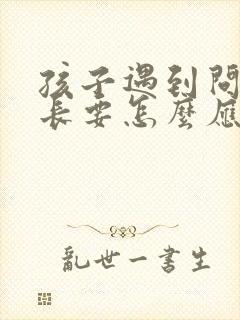 孩子遇到問
長要怎麼應
亂世一書生